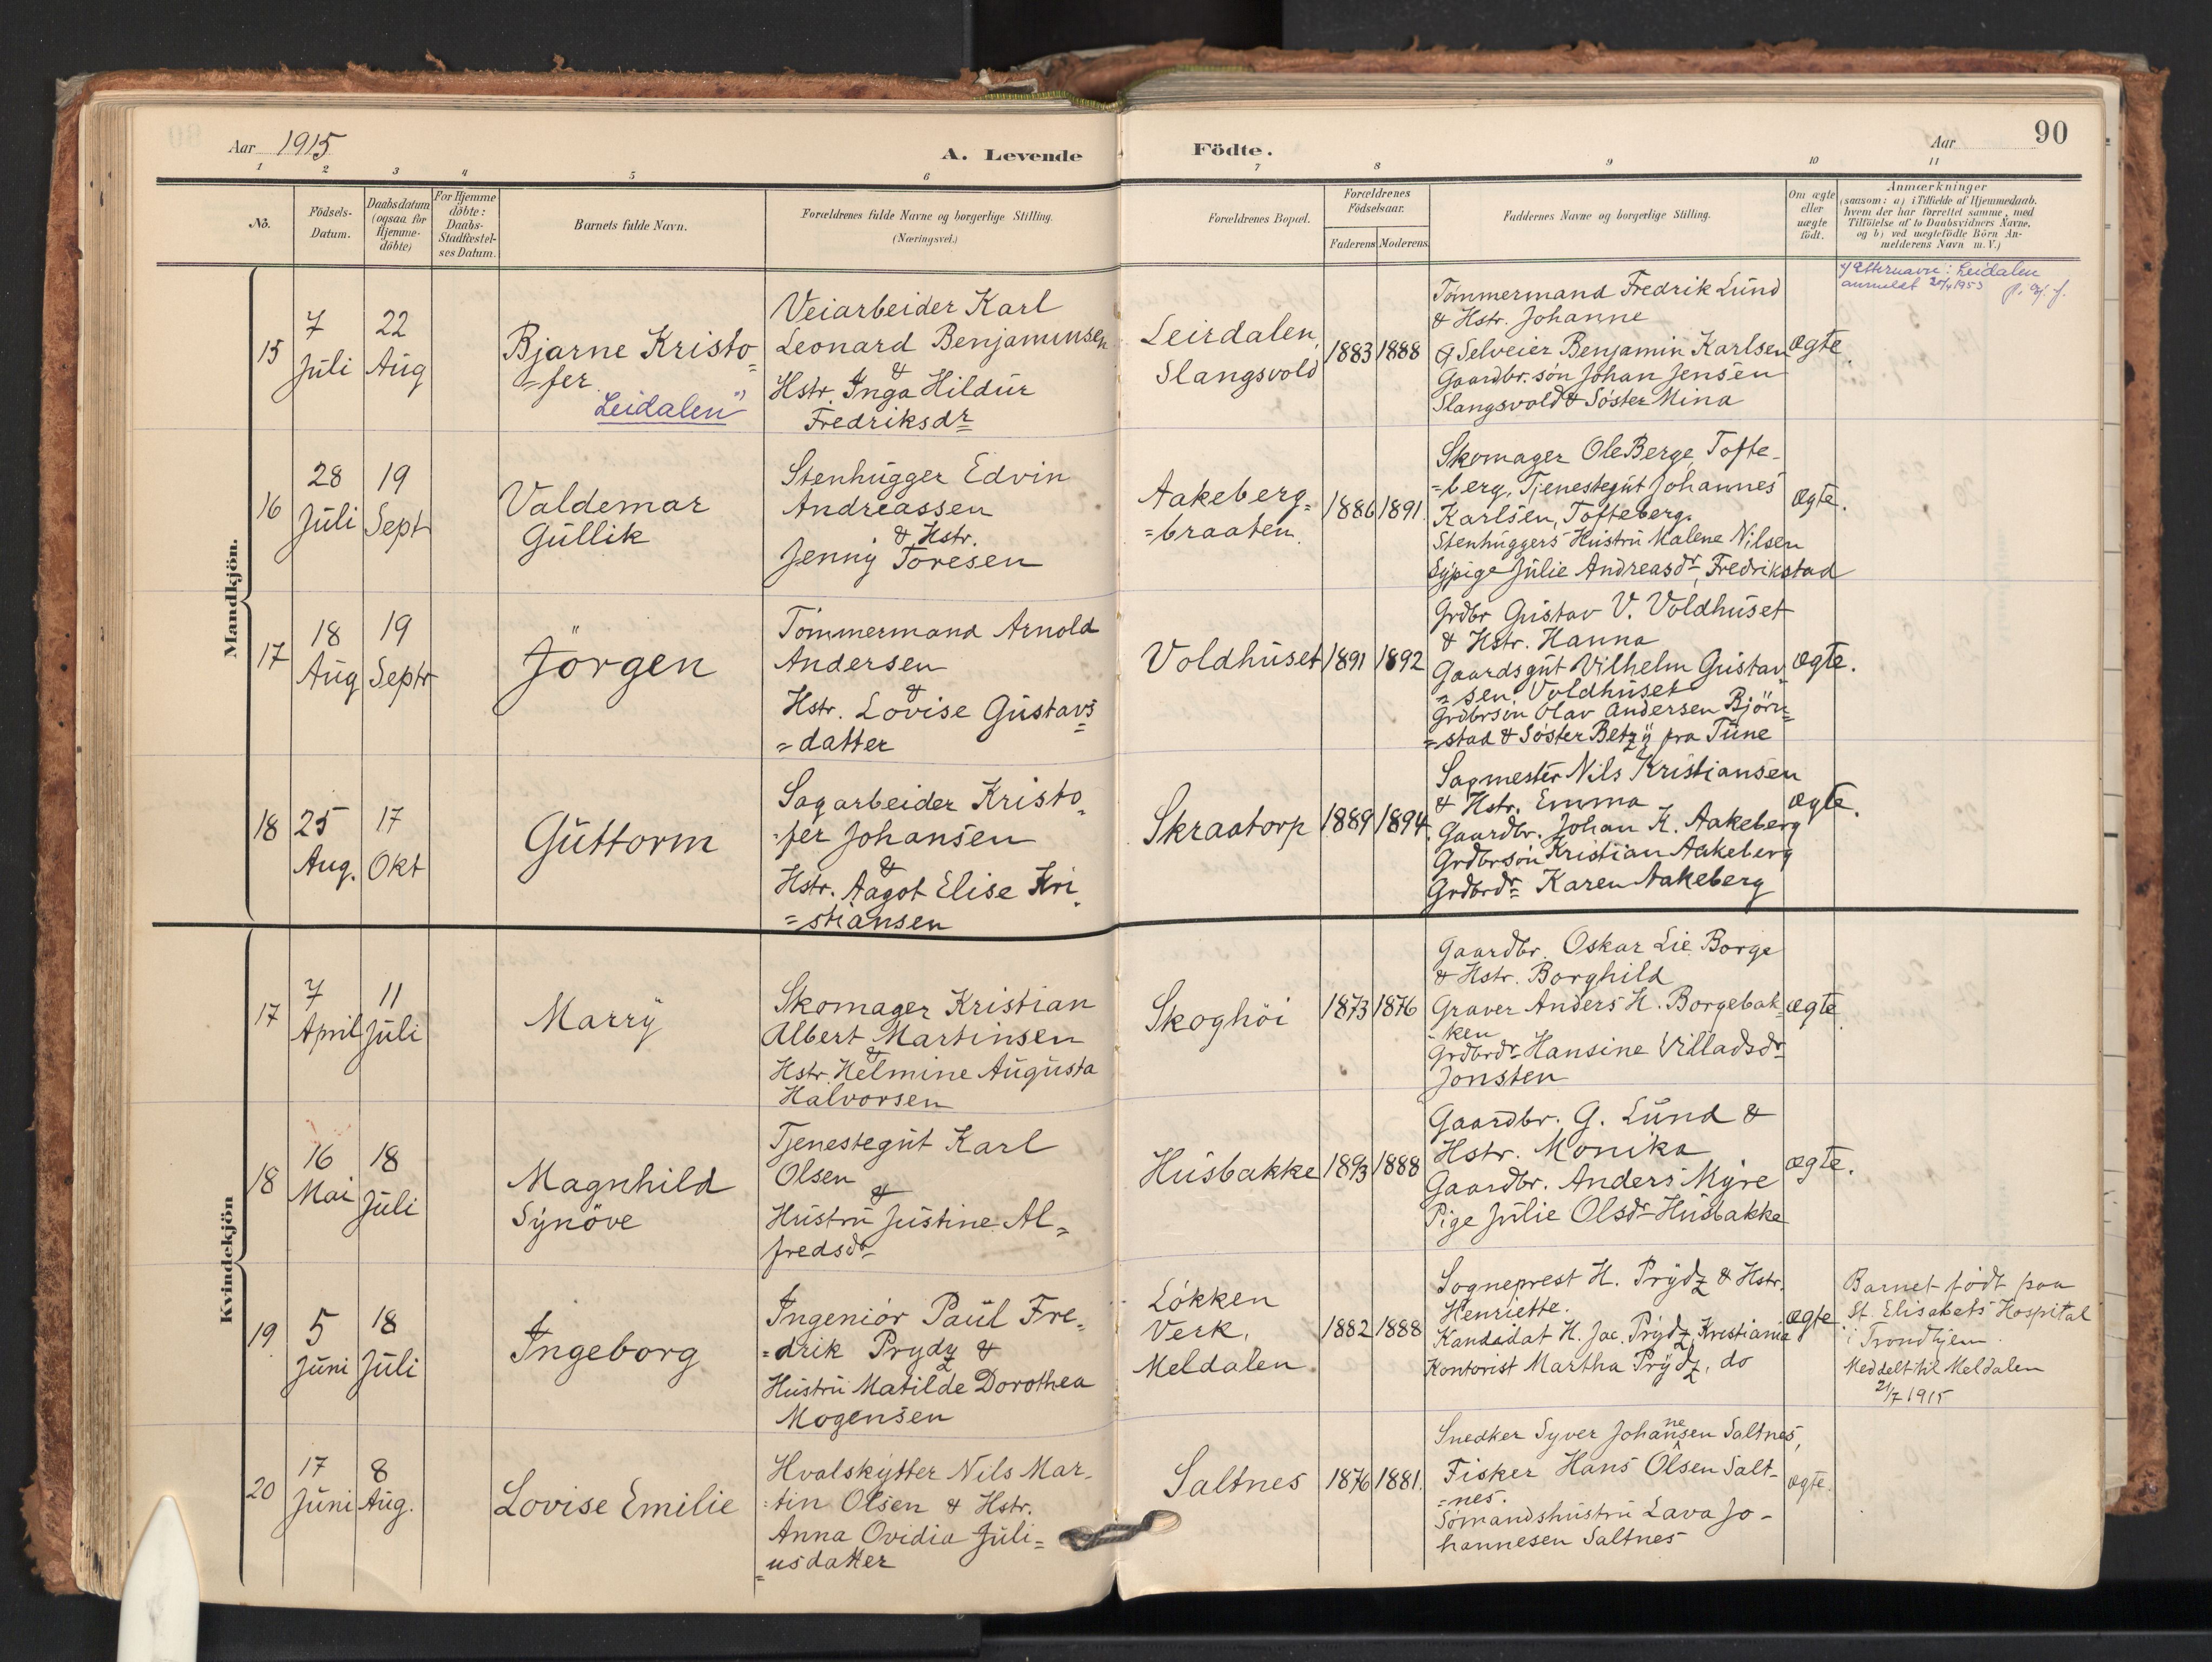 Aar 1915
A. Levende
Födte.
Aar
90
1 2 3 4 5 6 7 8 9 10 11
No.
Födsels-
Datum.
Daabsdatum
(ogsaa for
Hjemme-
döbte)
For Hjemme
döbte:
Daabs-
Stadfœstel-
ses Datum.
Barnets fulde Navn.
Forœldrenes fulde Navne og borgerlige Stilling.
(Nœringsvei.)
Forœldrenes Bopœl.
Forœldrenes
Födselsaar.
Faderens
Moderens
Faddernes Navne og borgerlige Stilling.
Om œgte
eller
uœgte
födt.
Anmœrkninger
(saasom: a) i Tilfœlde af Hjemmedaab,
hvem der har forrettet samme, med
Tilföielse af to Daabsvidners Navne,
og b) ved uœgtefödte Börn An-
melderens Navn m. V.)
Mandkjön.
15
7
Juli
22
Aug
Bjarne Kristo
=fer
Leidalen ")
Veiarbeider Karl
Leonard Benjaminsen
&
Hstr. Inga Hildur
Fredriksdr
Leirdalen,
Slangsvold
1883
1888
Tömmermand Fredrik Lund
& Hstr. Johanne
Selveier Benjamin Karlsen
Gaardbr.søn Johan Jensen
Slangsvold & Søster Mina
œgte.
Etternavn: Leidalen
anmeldt 20/4 1953
16
28
Juli
19
Sept
Valdemar
Gullik
Stenhugger Edvin
Andreassen
& Hstr.
Jenny Toresen
Aakeberg=
=braaten.
1886
1891
Skomager Ole Berge, Tofte-
=berg, Tjenestegut Johannes
Karlsen, Tofteberg.
Stenhuggers Hustru Malene Nilsen
Sypige Julie Andreasdr, Fredrikstad
œgte.
17
18
Aug
19
Septr
Jörgen
Tömmermand Arnold
Andersen
&
Hstr. Lovise Gustavs
=datter
Voldhuset
1891
1892
Grdbr Gustav V. Voldhuset
& Hstr. Hanna
Gaardsgut Vilhelm Gustav
=sen Voldhuset
Grdbrsøn Olav Andersen Björn=
=stad & Söster Betzy fra Tune
œgte.
18
25
Aug.
17
Okt
Guttorm
Sagarbeider Kristo=
=fer Johansen
&
Hstr. Aagot Elise Kri=
=stiansen
Skraatorp
1889
1894.
Sagmester Nils Kristiansen
& Hstr. Emma
Gaardbr. Johan K. Aakeberg
Grdbrsøn Kristian Aakeberg
Grdbrdr Karen Aakeberg
œgte.
Kvindekjön
17
7
April
11
Juli
Marry
Skomager Kristian
Albert Martinsen
&
Hstr. Helmine Augusta
Halvorsen
Skoghöi
1873
1876
Gaardbr. Oskar Lie Borge
& Hstr. Borghild
Graver Anders H. Borgebak
=ken
Grdbrdr Hansine Villadsdr
Jonsten
œgte.
18
16
Mai
18
Juli
Magnhild
Synöve
Tjenestegut Karl
Olsen
&
Hustru Justine Al=
fredsdr
Husbakke
1893
1888
Gaardbr. G. Lund &
Hstr. Monika
Gaardbr. Anders Myre
Pige Julie Olsdr Husbakke
œgte.
19
5
Juni
18
Juli
Ingeborg
Ingeniör Paul Fre=
=drik Prydz &
Hustru Matilde Dorothea
Mogensen
Lökken
Verk,
Meldalen.
1882
1888
Sogneprest H. Prydz & Hstr.
Henriette.
Kandidat H. Jac. Prydz, Kristiania
Kontorist Martha Prydz, do
œgte.
Barnet født paa
St. Elisabets Hospital
i Trondhjem.
Meddelt til Meldalen
21/7 1915
20
17
Juni
8
Aug.
Lovise Emilie
Hvalskytter Nils Mar=
=tin Olsen & Hstr.
Anna Ovidia Juli=
=usdatter
Saltnes
1876
1881.
Snedker Syver Johannesen Saltnes,
Fisker Hans Olsen Salt-
=nes.
Sömandshustru Lava Jo-
hannesen Saltnes
œgte.